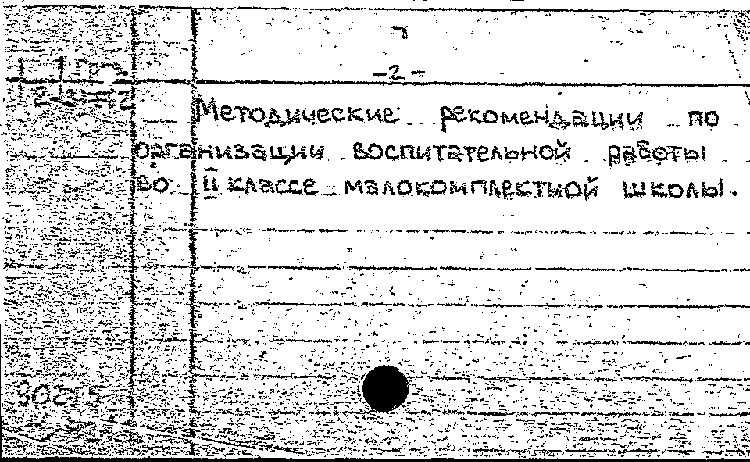 - 2 -
Методические рекомендации по
организации воспитательной работы
во II классе малокомплектной школы.